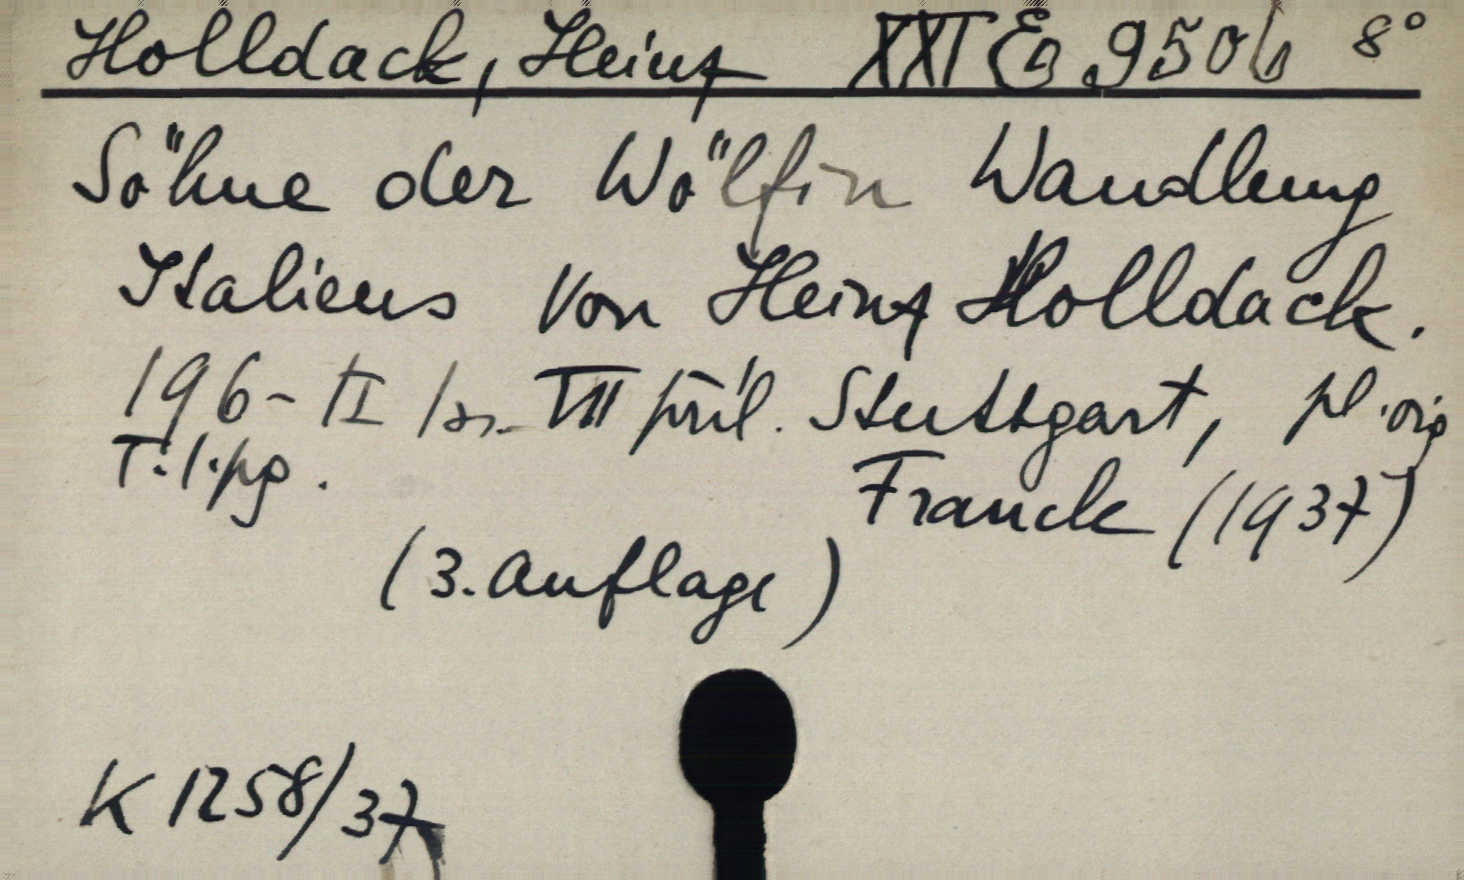 Holldack, Heinz XXI E 950b 8°
Söhne der Wölfin Wandlung
Italiens von Heinz Holldack.
196-II příl. Stuttgart, pl. orig
T. 1. pg. Franck (1937)
(3. Auflage)
K 1258/37